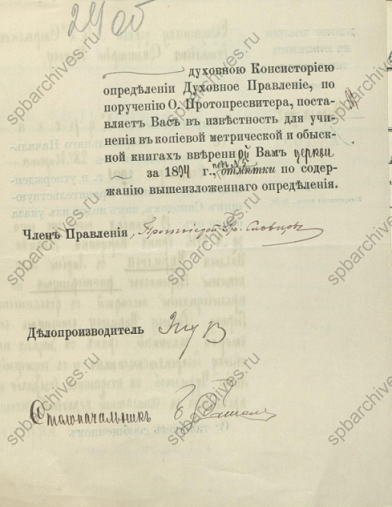 24 об
духовною Консисторіею
опредѣленіи Духовное Правленіе, по
порученію О. Протопресвитера, поста-
вляетъ Васъ въ извѣстность для учи-
ненія въ копіевой метрической и обыск-
ной книгахъ ввѣренной Вамъ церкви
за 1894 г., отмѣтки по содер-
жанію вышеизложеннаго опредѣленія.
Членъ Правленія, Протоіерей Гр. Словцовъ
Дѣлопроизводитель
Столоначальникъ
spbarchives.ru